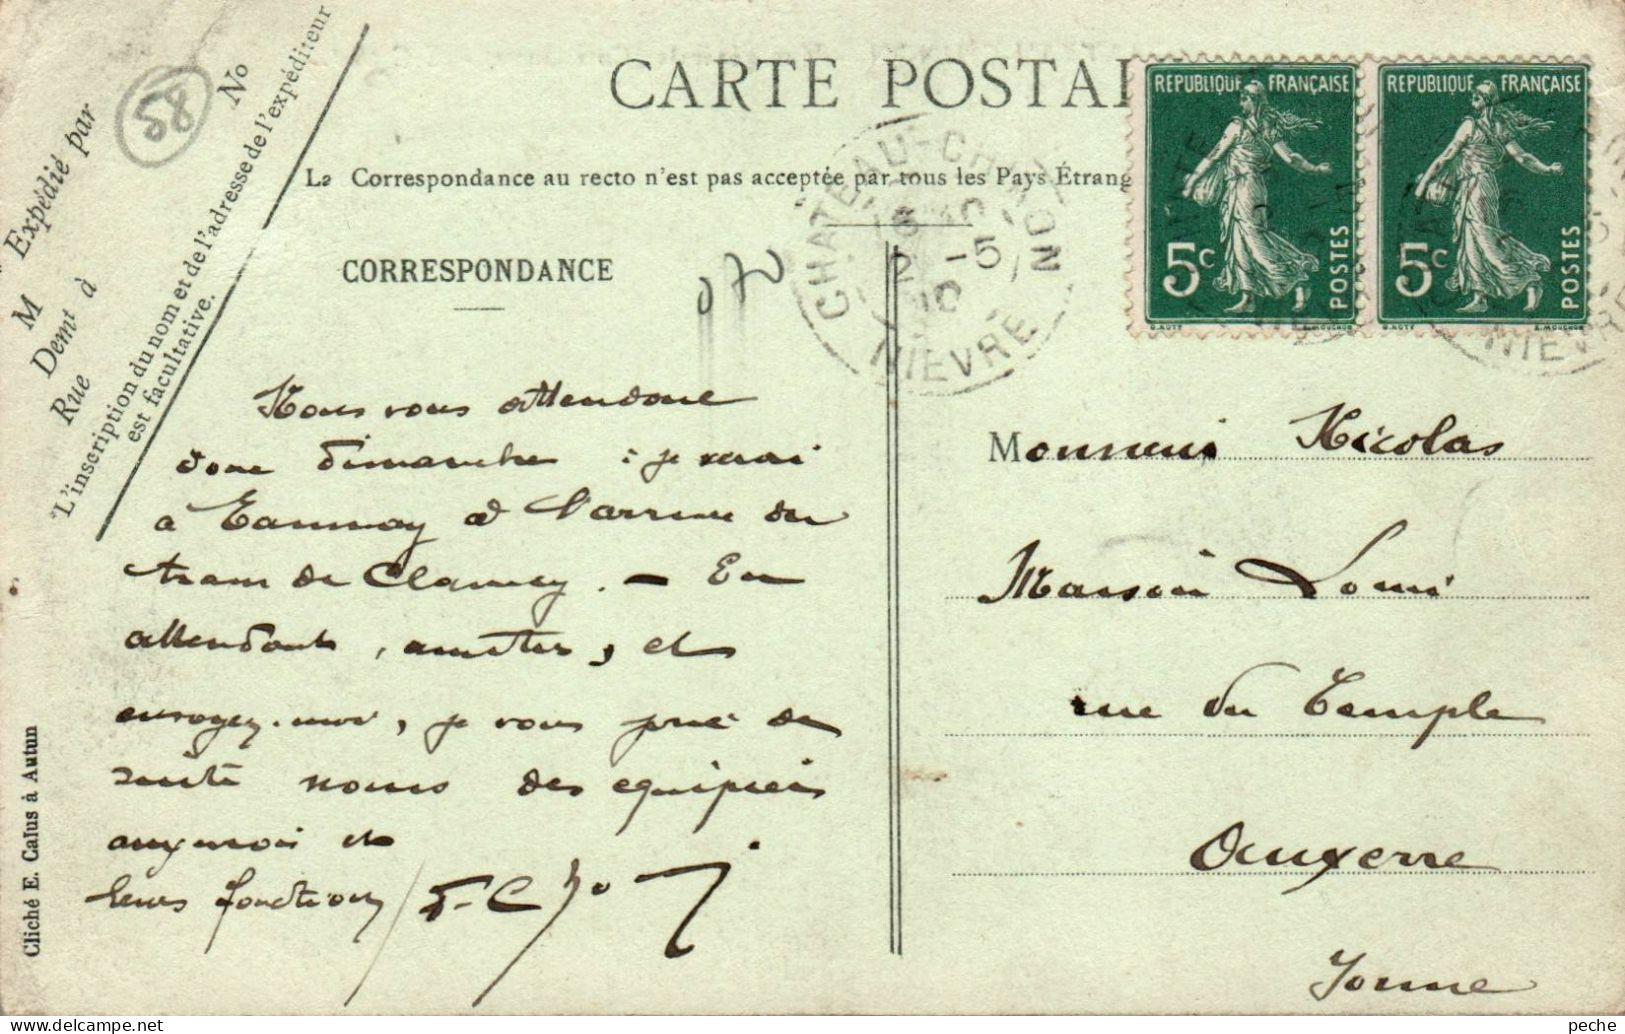 CARTE POSTAL
La Correspondance au recto n'est pas acceptée par tous les Pays Étrang
CORRESPONDANCE
Expédié par
M
Demt à
Rue
No
L'inscription du nom et de l'adresse de l'expéditeur
est facultative.
58
CHATEAU-CHINON
10
-5
10
NIEVRE
REPUBLIQUE FRANÇAISE
5c
POSTES
O. ROTY
E. MOUCHON
REPUBLIQUE FRANÇAISE
5c
POSTES
O. ROTY
E. MOUCHON
NIEVRE
Nous vous attendons
donc dimanche : je serai
à Tannay à l'arrivée du
tram de Clamecy. — En
attendant, et
envoyez-moi, je vous prie de
suite noms des equipiers
auxerrois et
leurs fonctions
Monsieur Nicolas
Maison
rue du Temple
Auxerre
Yonne
Cliché E. Calus à Autun
peche